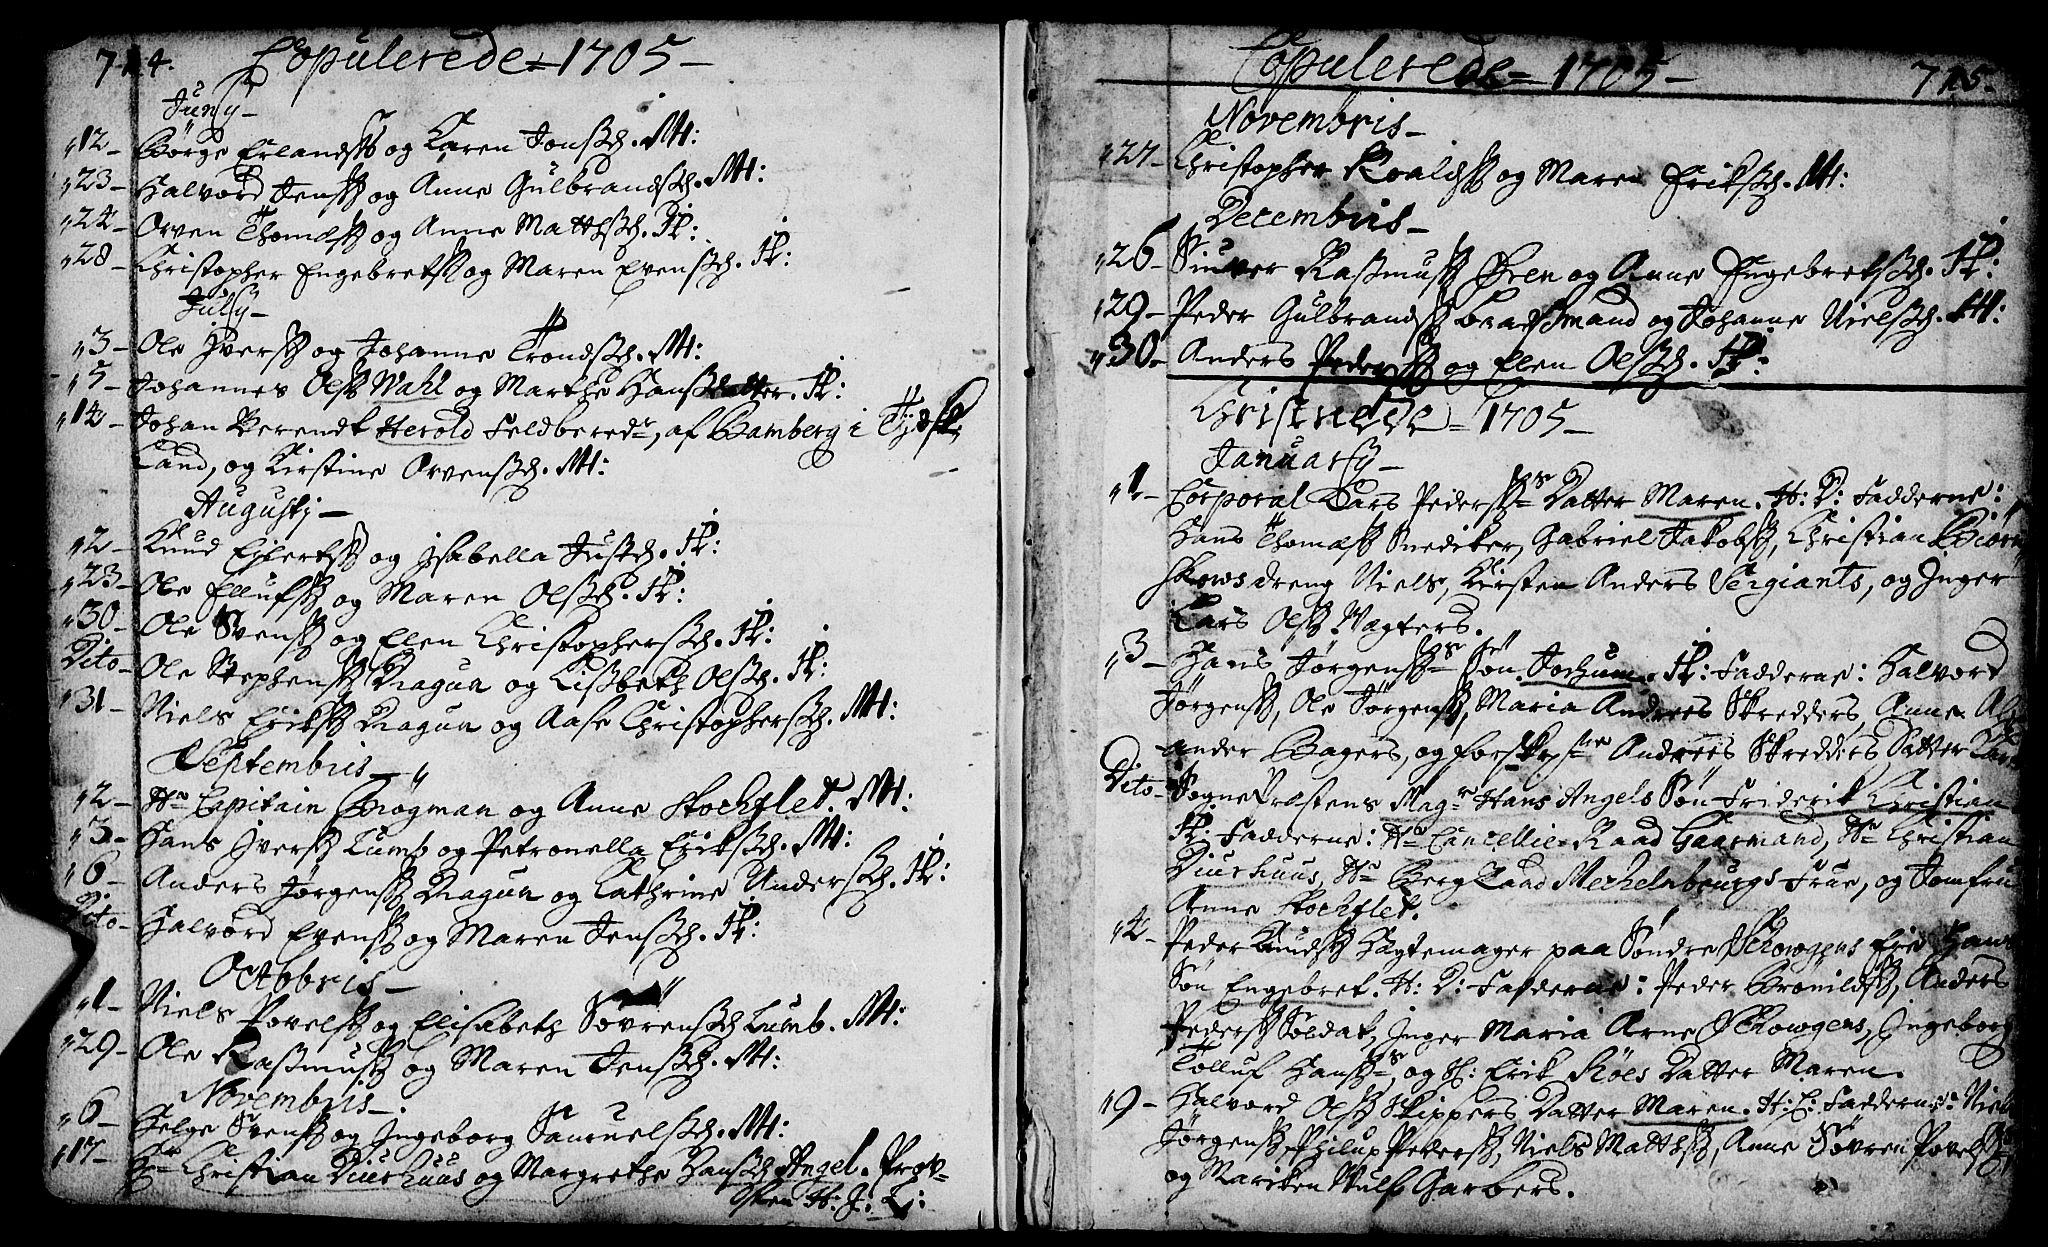 714. Copulerede = 1705 –
Junÿ –
12 – Börge Erlands. og Karen Jonsd. M:
23 – Halvord Jens. og Anne Gulbrandsd. M:
24 – Orven Thomes. og Anne Mattisd. H:
28 – Christopher Engebrets. og Maren Evensd. H:
Julÿ –
3 – Ole Ivers. og Johanne Trondsd. M:
5 – Johannes Ols. Wahl og Marthe Hansdatter. H:
14 – Johan Berendt Herold Feldbered:, af Bamberg i Tydsk
Land, og Kirstine Orvensd. M:
Augustj –
2 – Knud Ejlerts. og Isabella Justd. H:
23 – Ole Ellufs. og Maren Olsd. H:
30 – Ole Svens. og Elen Christophersd. H:
Dito – Ole Stephens. Dragun og Lisbeth Olsd. H:
31 – Niels Eriks. Dragun og Aase Christophersd. M:
Septembris –
2 – Hr Capitain Brögman og Anne Stochflet. M:
3 – Hans Ivers. Lumb og Petronella Eriksd. M:
6 – Anders Jørgens. Dragun og Cathrine Andersd. H:
Dito – Halvord Evens. og Maren Jensd. H:
Octobris –
1 – Niels Povels. og Elisabeth Søvrensd. Lumb. M:
29 – Ole Rasmus. og Maren Jensd. M:
Novembris –
6 – Helge Svens. og Ingeborg Samuelsd. M:
17 – Hr Christian Diurhuus og Margrethe Hansd. Angel. Prov-
sten H: J: L:
Copulerede = 1705 – 715.
Novembris –
27 – Christopher Roalds. og Maren Eriksd. M:
Decembris –
26 – Siuver Rasmus. Øren og Anne Engebretsd. H:
29 – Peder Gulbrands. baadsmand og Johanne Nielsd. M:
30 – Anders Peders. og Elen Olsd. H:
Christnede = 1705 –
Januarÿ –
1 – Corporal Lars Peders. Datter Maren. H: D: Fadderne:
Hans Thomes. Snediker, Gabriel Jakobs., Christian Biørn
skows dreng Niels, Kirsten Anders Sergiants, og Inger
Lars Ols. Vagters.
3 – Hans Jørgens. Søn. Jochum. H: Fadderne: Halvord
Jørgens., Ole Jørgens., Maria Andrees Skredders, Anne Alex
ander Bagers, og Andrees Skredders Datter
Dito – SognePræstens Magr Hans Angels Søn Friderik Christian
H: Fadderne: Hr Cancellie-Raad Gaarmand, Hr Christian
Diurhuus, Hr Berg Raad Mechelnbourgs Frue, og Jomfru
Anne Stochflet.
4 – Peder Knuds. Hagtemager paa Søndre Skowgens Eie Hans
Søn Engebret. H: D: Fadderne: Peder Brønilds., Anders
Peders. Soldat, Inger Maria Arne Skowgens, Ingeborg
Tolluf Hans. og Sl: Erik Röes Datter Maren.
9 – Halvord Ols. Skippers Datter Maren. H: C: Fadderne: Niels
Jørgens., Philup Peders., Niels Matths., Anne Søvren Povels.
og Mariken Wulf Garbers.